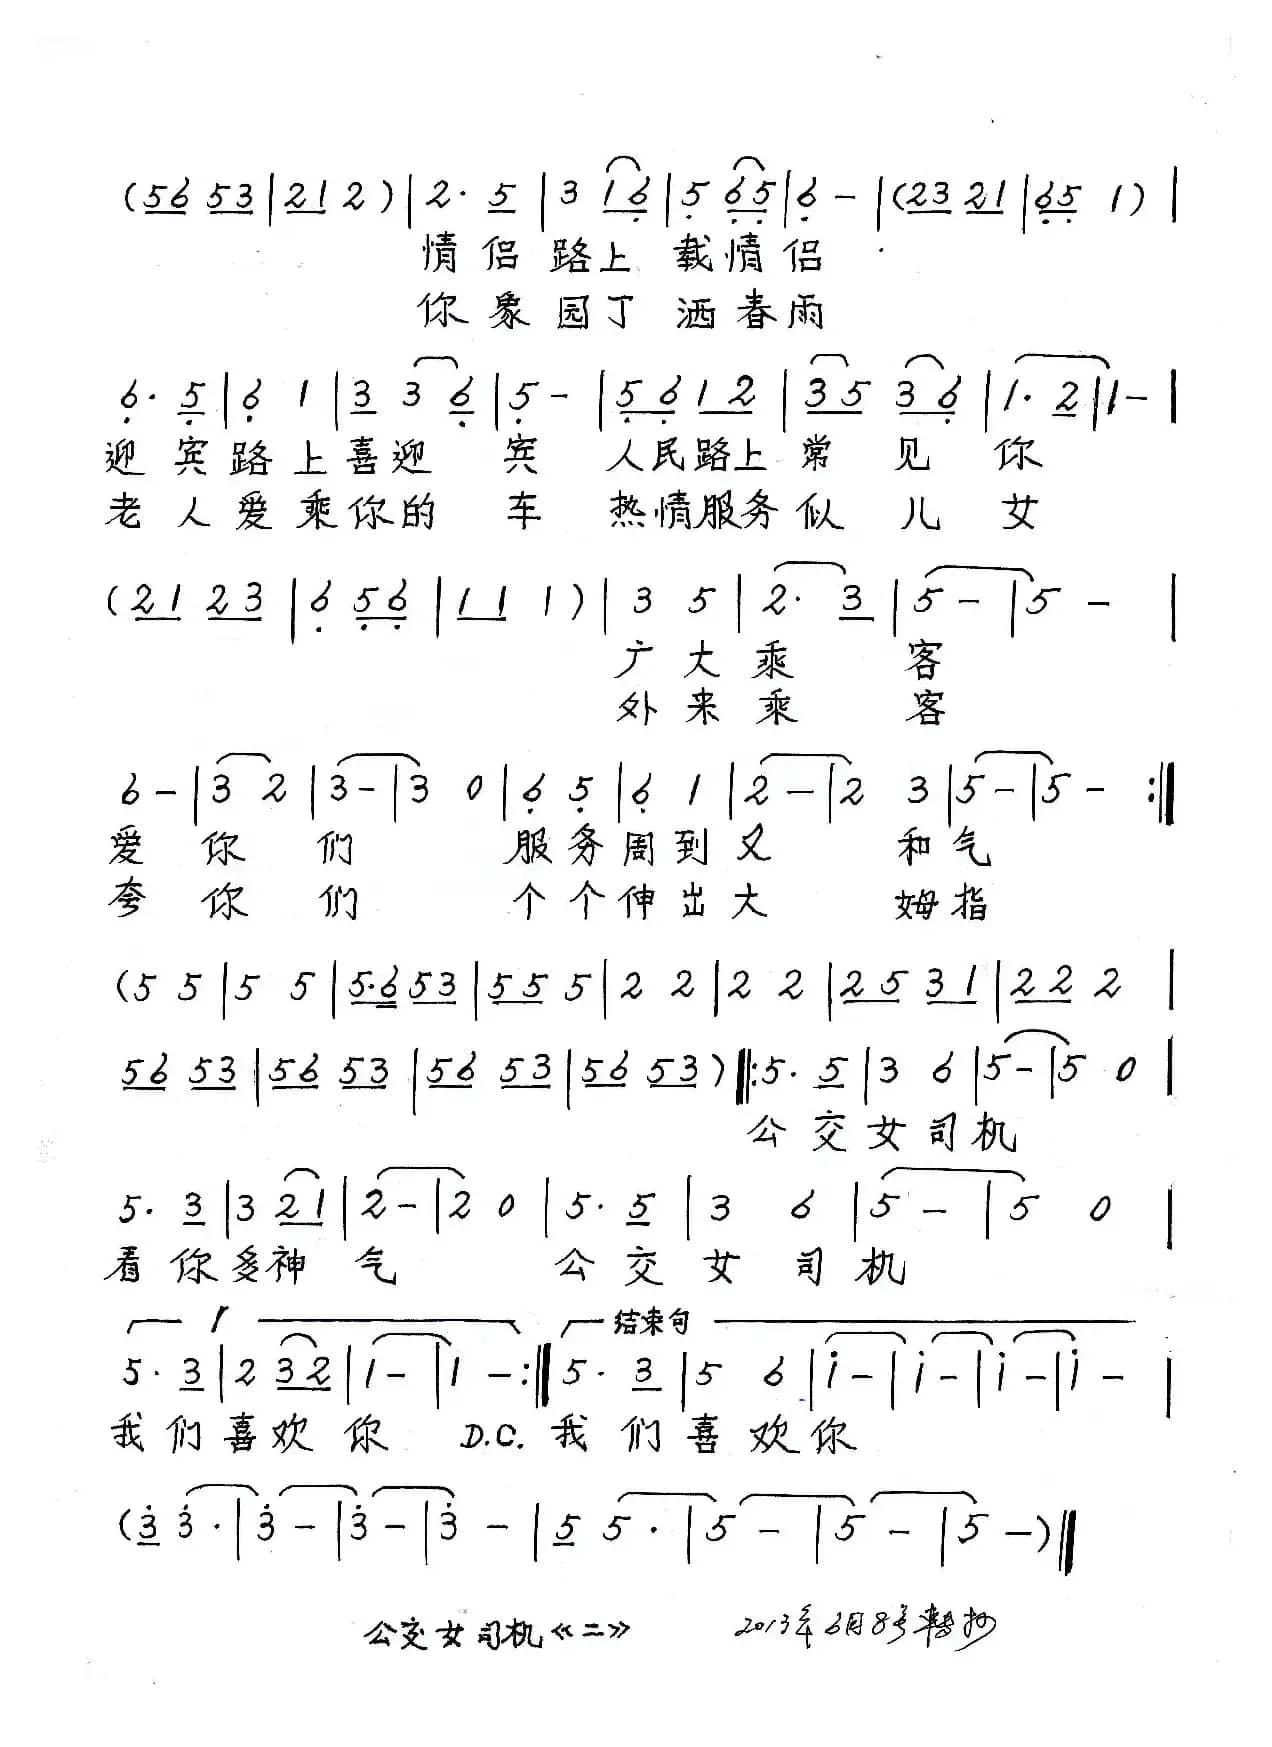 (56 53 | 21 2) | 2· 5 | 3 16 | 5 65 | 6 – | (23 21 | 65 1) |
情侣路上 载情侣
你象园丁 洒春雨
6· 5 | 6 1 | 3 3 6 | 5 – | 56 12 | 35 36 | 1· 2 | 1 – |
迎宾路上喜迎宾 人民路上常见你
老人爱乘你的车 热情服务似儿女
(21 23 | 6 56 | 11 1) | 3 5 | 2· 3 | 5 – | 5 – |
广大乘客
外来乘客
6 – | 3 2 | 3 – | 3 0 | 6 5 | 6 1 | 2 – | 2 3 | 5 – | 5 – :||
爱你们 服务周到又和气
夸你们 个个伸出大姆指
(5 5 | 5 5 | 5·6 53 | 55 5 | 2 2 | 2 2 | 25 31 | 22 2 |
56 53 | 56 53 | 56 53 | 56 53) ||: 5· 5 | 3 6 | 5 – | 5 0 |
公交女司机
5· 3 | 3 21 | 2 – | 2 0 | 5· 5 | 3 6 | 5 – | 5 0 |
看你多神气 公交女司机
1 结束句
5· 3 | 2 32 | 1 – | 1 – :|| 5· 3 | 5 6 | i – | i – | i – | i – |
我们喜欢你 D.C. 我们喜欢你
(3 3· | 3 – | 3 – | 3 – | 5 5· | 5 – | 5 – | 5 –) ||
公交女司机《二》 2013年6月8号转抄